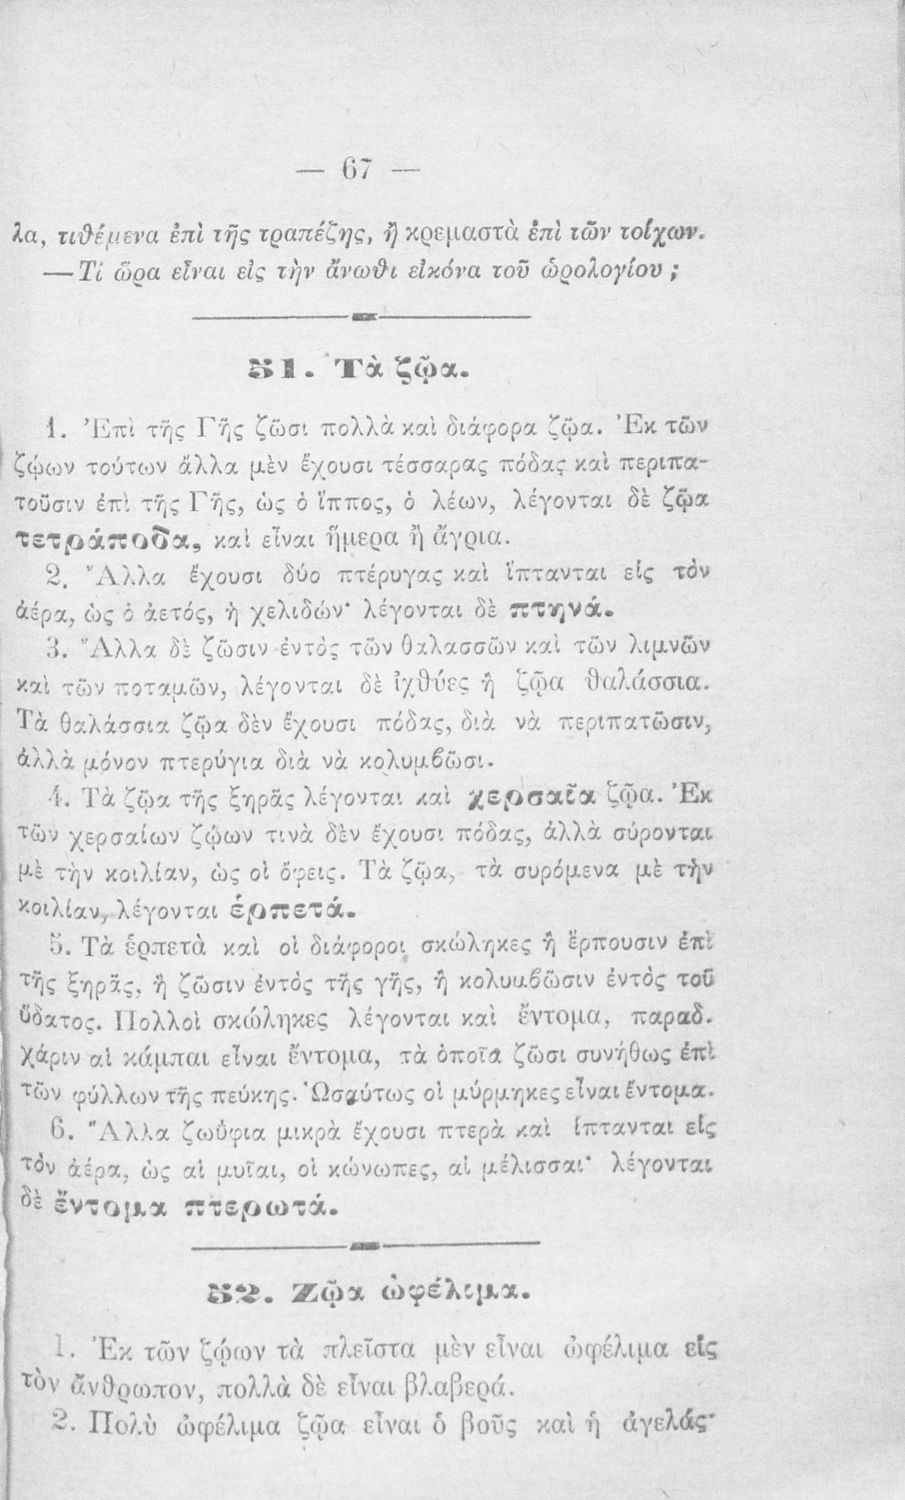 — 67 —
λα, τιθέμενα ἐπὶ τῆς τραπέζης, ἢ κρεμαστὰ ἐπὶ τῶν τοίχων.
—Τί ὥρα εἶναι εἰς τὴν ἄνωθι εἰκόνα τοῦ ὡρολογίου ;
51. Τὰ ζῷα.
1. Ἐπὶ τῆς Γῆς ζῶσι πολλὰ καὶ διάφορα ζῷα. Ἐκ τῶν
ζῴων τούτων ἄλλα μὲν ἔχουσι τέσσαρας πόδας καὶ περιπα-
τοῦσιν ἐπὶ τῆς Γῆς, ὡς ὁ ἵππος, ὁ λέων, λέγονται δὲ ζῷα
τετράποδα, καὶ εἶναι ἥμερα ἢ ἄγρια.
2. Ἄλλα ἔχουσι δύο πτέρυγας καὶ ἵπτανται εἰς τὸν
ἀέρα, ὡς ὁ ἀετός, ἡ χελιδών· λέγονται δὲ πτηνά.
3. Ἄλλα δὲ ζῶσιν ἐντὸς τῶν θαλασσῶν καὶ τῶν λιμνῶν
καὶ τῶν ποταμῶν, λέγονται δὲ ἰχθύες ἢ ζῷα θαλάσσια.
Τὰ θαλάσσια ζῷα δὲν ἔχουσι πόδας, διὰ νὰ περιπατῶσιν,
ἀλλὰ μόνον πτερύγια διὰ νὰ κολυμβῶσι.
4. Τὰ ζῷα τῆς ξηρᾶς λέγονται καὶ χερσαῖα ζῷα. Ἐκ
τῶν χερσαίων ζῴων τινὰ δὲν ἔχουσι πόδας, ἀλλὰ σύρονται
μὲ τὴν κοιλίαν, ὡς οἱ ὄφεις. Τὰ ζῷα, τὰ συρόμενα μὲ τὴν
κοιλίαν, λέγονται ἑρπετά.
5. Τὰ ἑρπετὰ καὶ οἱ διάφοροι σκώληκες ἢ ἕρπουσιν ἐπὶ
τῆς ξηρᾶς, ἢ ζῶσιν ἐντὸς τῆς γῆς, ἢ κολυμβῶσιν ἐντὸς τοῦ
ὕδατος. Πολλοὶ σκώληκες λέγονται καὶ ἔντομα, παραδ.
χάριν αἱ κάμπαι εἶναι ἔντομα, τὰ ὁποῖα ζῶσι συνήθως ἐπὶ
τῶν φύλλων τῆς πεύκης. Ὡσαύτως οἱ μύρμηκες εἶναι ἔντομα.
6. Ἄλλα ζωΰφια μικρὰ ἔχουσι πτερὰ καὶ ἵπτανται εἰς
τὸν ἀέρα, ὡς αἱ μυῖαι, οἱ κώνωπες, αἱ μέλισσαι· λέγονται
δὲ ἔντομα πτερωτά.
52. Ζῷα ὠφέλιμα.
1. Ἐκ τῶν ζῴων τὰ πλεῖστα μὲν εἶναι ὠφέλιμα εἰς
τὸν ἄνθρωπον, πολλὰ δὲ εἶναι βλαβερά.
2. Πολὺ ὠφέλιμα ζῷα εἶναι ὁ βοῦς καὶ ἡ ἀγελάς·